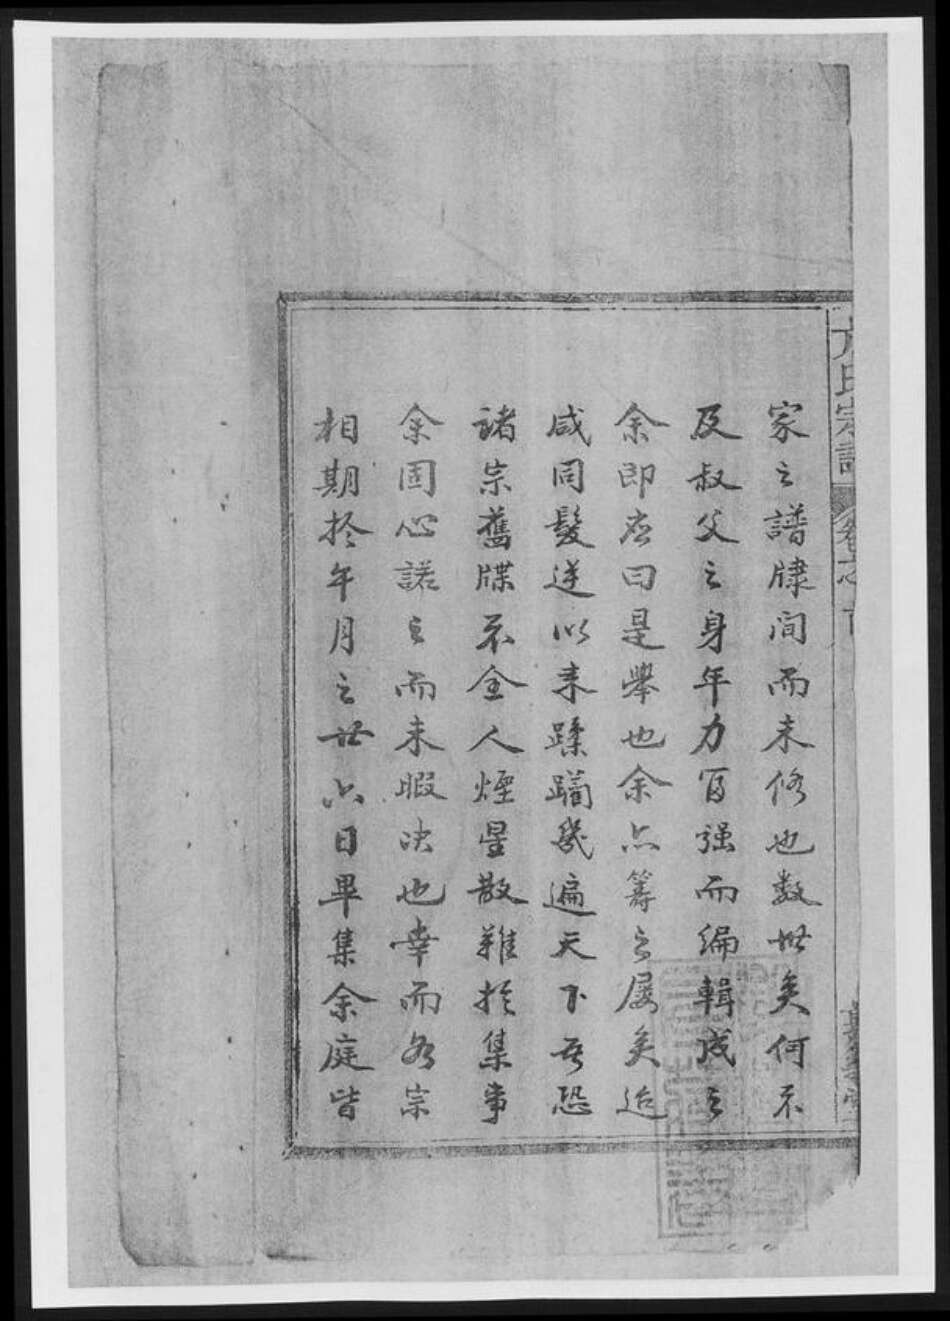 家之譜牘間而未修也数世矣何不
及叔父之身年力富强而編輯成之
余即應曰是舉也余亦籌之屡矣迨
咸同髮逆以来蹂躪幾遍天下吾恐
諸宗舊牒不全人煙星散難扵集事
余固心諾之而未暇决也幸而各宗
相期扵午月之廿六日畢集余庭皆
氏宗譜
卷之首